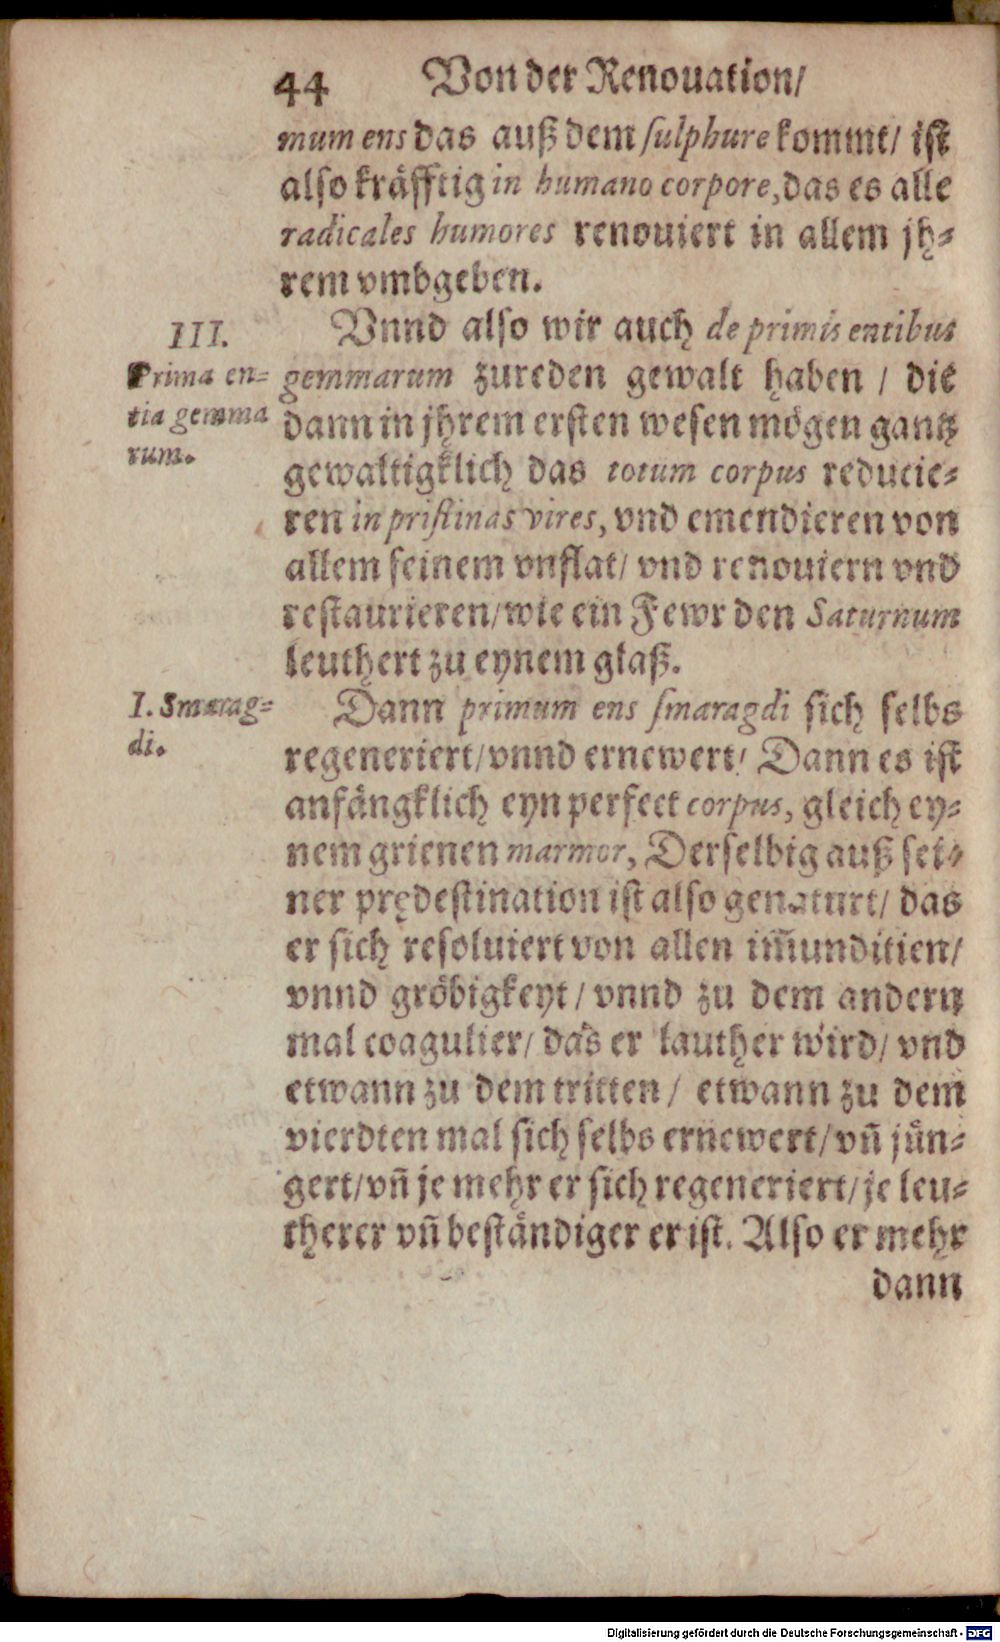 44 Von der Renouation/
mum ens das auß dem sulphure kommt/ ist
also kräfftig in humano corpore, das es alle
radicales humores renouiert in allem jh⸗
rem vmbgeben.
III.
Prima en⸗
tia gemma
rum.
Vnnd also wir auch de primis entibus
gemmarum zureden gewalt haben / die
dann in jhrem ersten wesen mögen gantz
gewaltigklich das totum corpus reducie⸗
ren in pristinas vires, vnd emendieren von
allem seinem vnflat/ vnd renouiern vnd
restaurieren/ wie ein Fewr den Saturnum
leuthert zu eynem glaß.
I. Smarag⸗
di.
Dann primum ens smaragdi sich selbs
regeneriert/ vnnd ernewert/ Dann es ist
anfängklich eyn perfect corpus, gleich ey⸗
nem grienen marmor, Derselbig auß sei⸗
ner prędestination ist also genaturt/ das
er sich resoluiert von allen im̃unditien/
vnnd gröbigkeyt / vnnd zu dem andern
mal coagulier/ das er lauther wird/ vnd
etwann zu dem tritten / etwann zu dem
vierdten mal sich selbs ernewert/ vñ jün⸗
gert/ vñ je mehr er sich regeneriert/ je leu⸗
therer vñ beständiger er ist. Also er mehr
dann
Digitalisierung gefördert durch die Deutsche Forschungsgemeinschaft - DFG